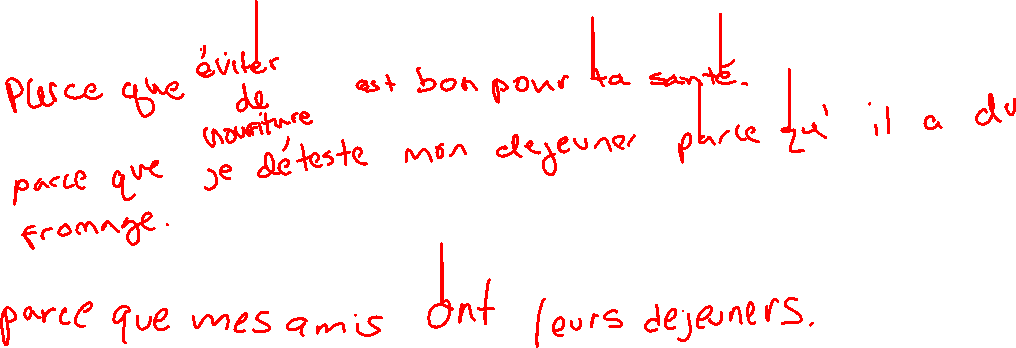 Parce que éviter de nouriture est bon pour ta santé.
parce que je déteste mon dejeuner parce qu' il a du
fromage.
parce que mes amis ont leurs dejeuners.